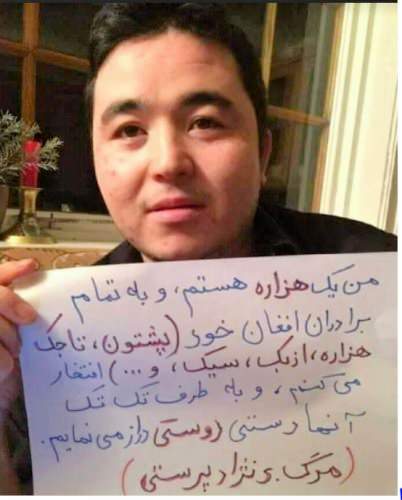 من یک هزاره هستم، و به تمام
برادران افغان خود (پشتون، تاجک
هزاره، ازبک، سیک، و...) افتخار
می کنم، و به طرف تک تک
آنها دستی دوستی دراز می نمایم.
(مرگ بر نژاد پرستی)